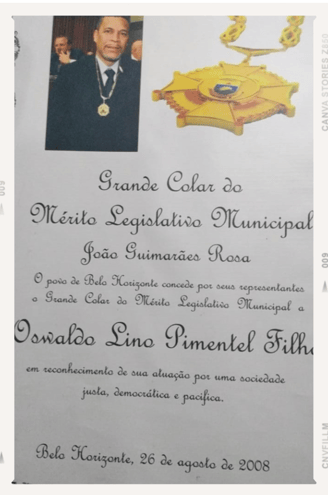 Grande Colar do
Mérito Legislativo Municipal
João Guimarães Rosa
O povo de Belo Horizonte concede por seus representantes
o Grande Colar do Mérito Legislativo Municipal a
Oswaldo Lino Pimentel Filho
em reconhecimento de sua atuação por uma sociedade
justa, democrática e pacífica.
Belo Horizonte, 26 de agosto de 2008
CANVA STORIES Z
009
009
CNVFILLM